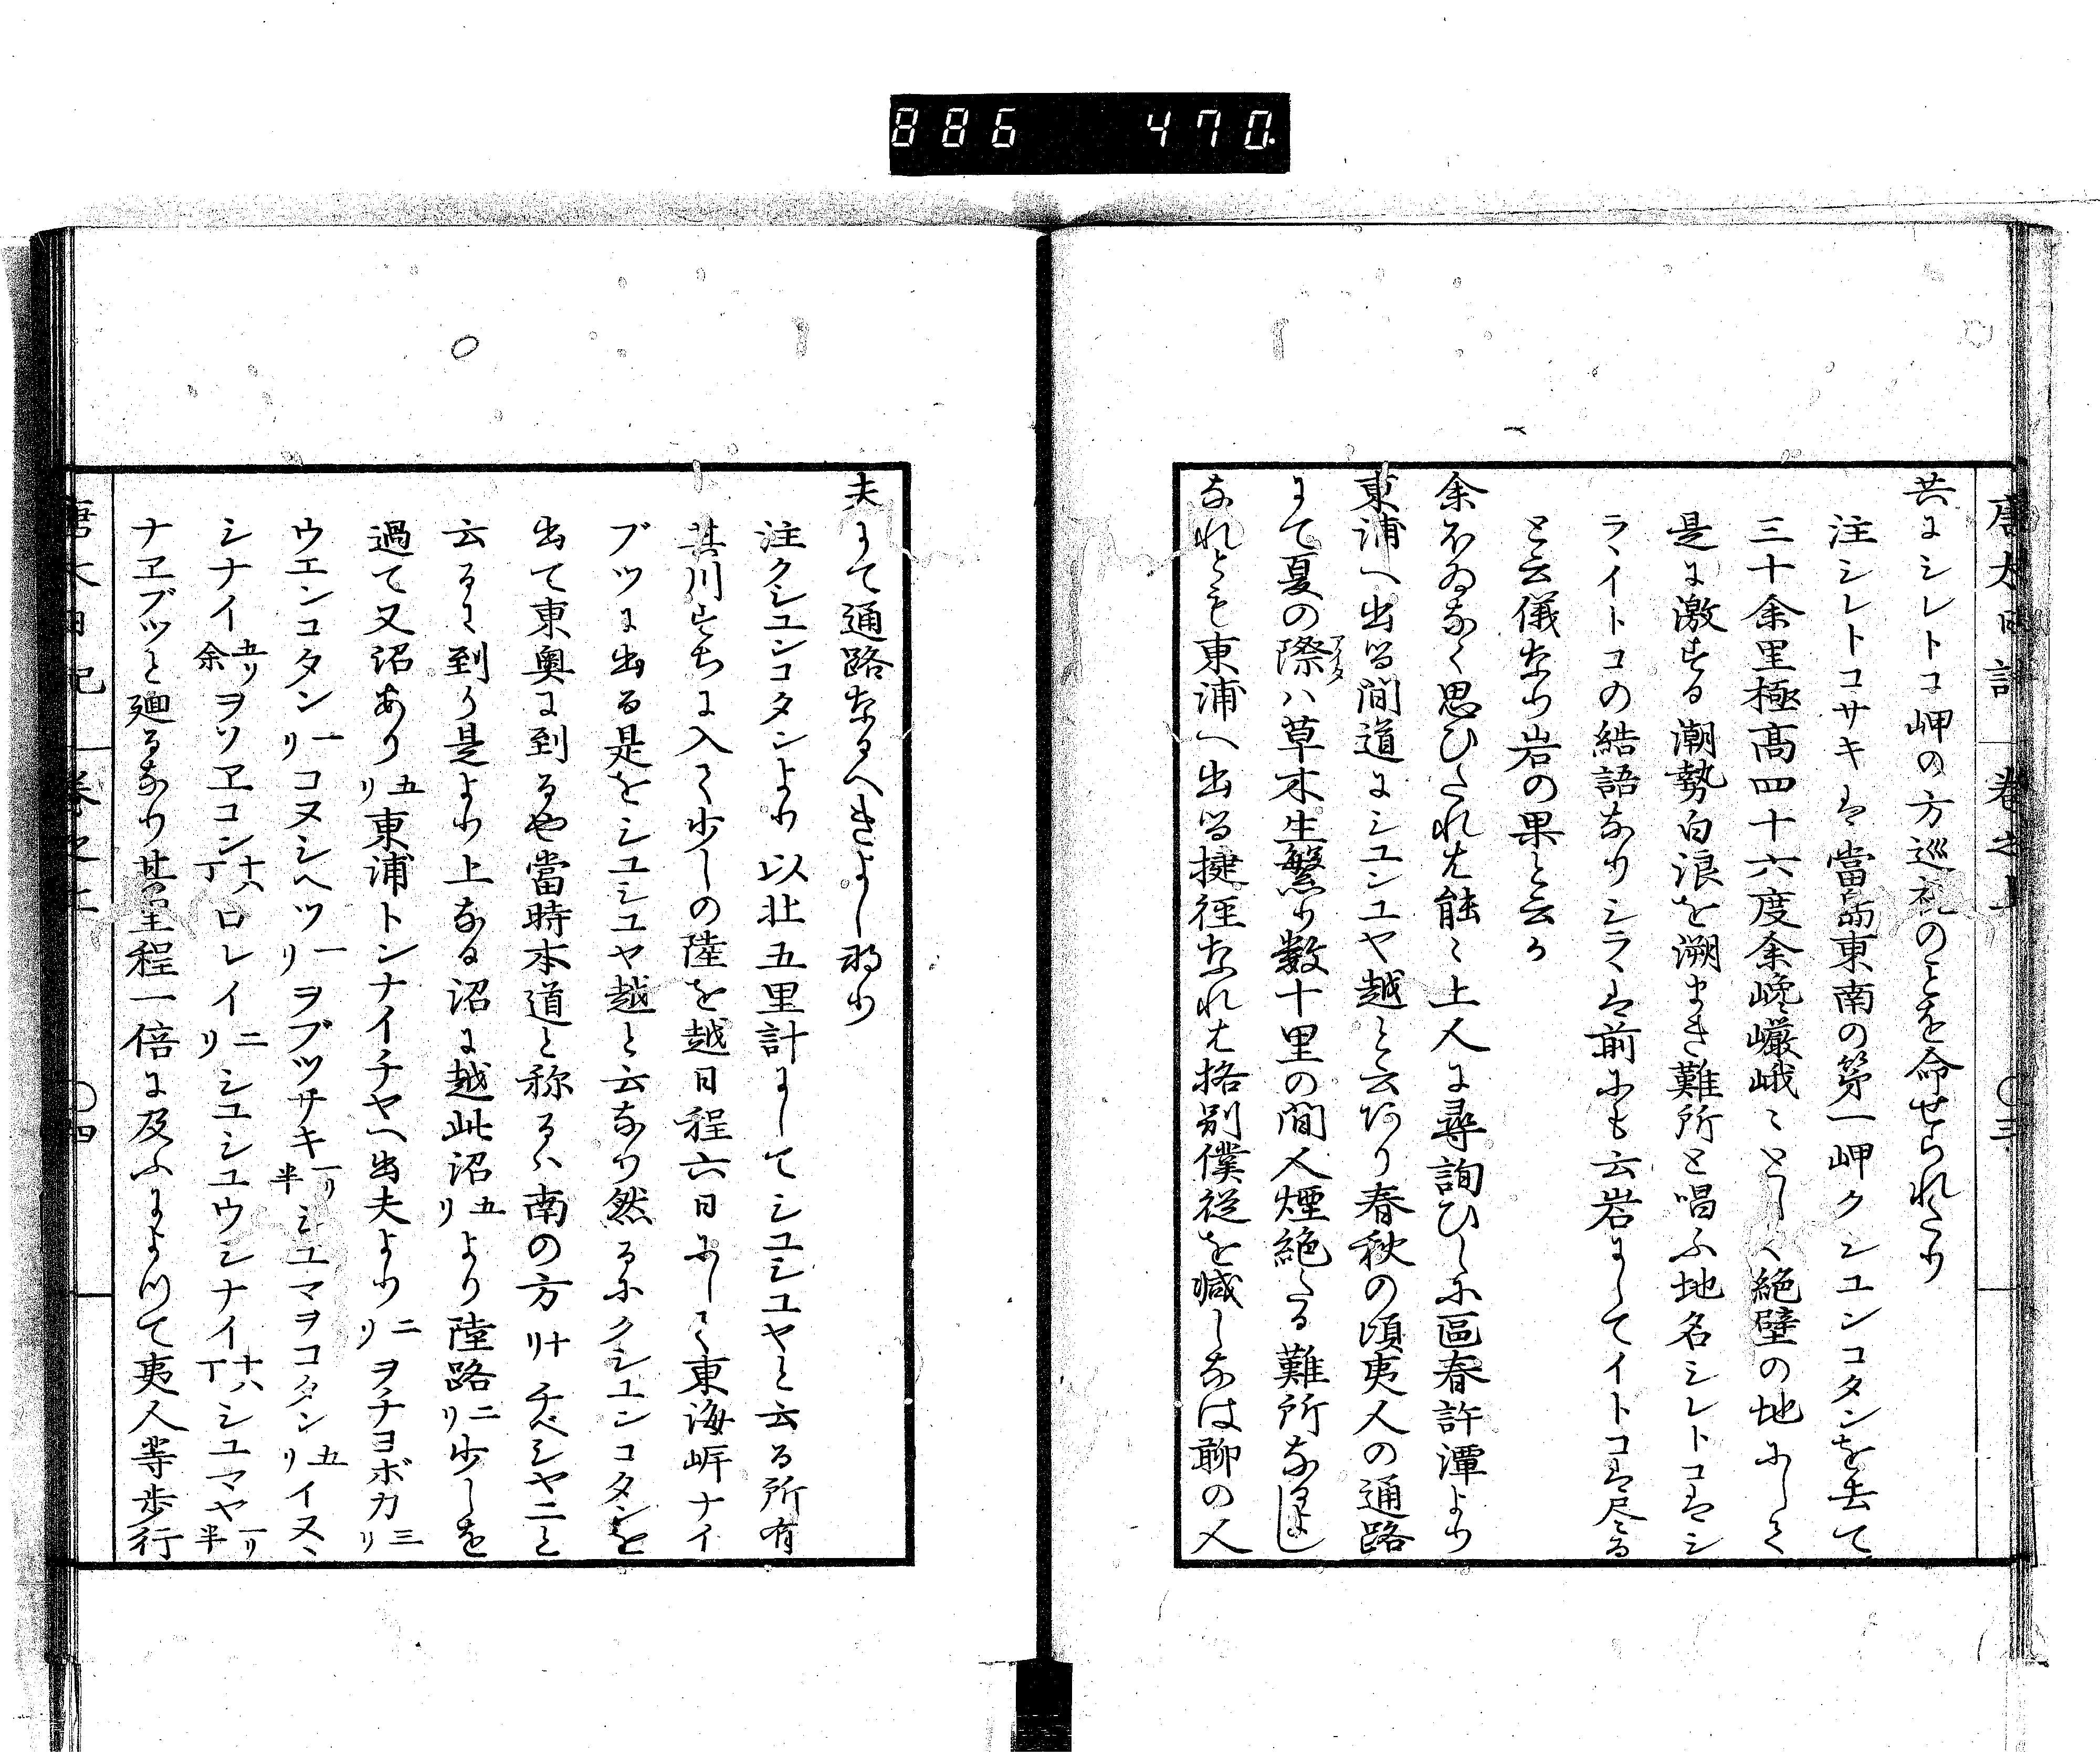 886 470
唐太日記 巻之上 〇三
共にシレトコ岬の方巡視のことを命せられたり
注シレトコサキは當島東南の第一岬クシユンコタンを去て
三十余里極高四十六度余巉巖峨々として絶壁の地にして
是に激する潮勢白浪を溯まき難所と唱ふ地名シレトコはシ
ラヽイトコの結語なりシラヽは前にも云岩にしてイトコは尽る
と云儀なり岩の果と云か
余おゐなく思ひたれは能々土人に尋詢ひしに區春許潭より
東浦へ出る間道にシユシユヤ越と云あり春秋の頃夷人の通路
にて夏の際ハ草木生繁り数十里の間人煙絶たる難所なるよし
アイタ
なれとも東浦へ出る捷徑なれは格別僕従を減しなは聊の人
夫にて通路なるへきよし形り
注クシユンコタンより以北五里計にしてシユシユヤと云る所有
其川すちに入て少しの陸を越日程六日にして東海岸ナイ
ブツに出る是をシユシユヤ越と云なり然るにクシユンコタンを
出て東奥に到るや當時本道と称るハ南の方十リチベシヤニと
云るに到り是より上なる沼に越此沼五リより陸路二リ少しを
過て又沼あり五リ東浦トンナイチヤへ出夫より二リヲチヨボカ三リ
ウエンコタン一リコヌシヘツ一リヲブツサキ一リ半シユマヲコタン五リイヌヽ
シナイ五リ余ヲソヱコン十八丁ロレイ二リシユシユウシナイ十八丁シユマヤ一リ半
ナヱブツと廻るなり其里程一倍に及ふによつて夷人等歩行
唐太日記 巻之上 〇四